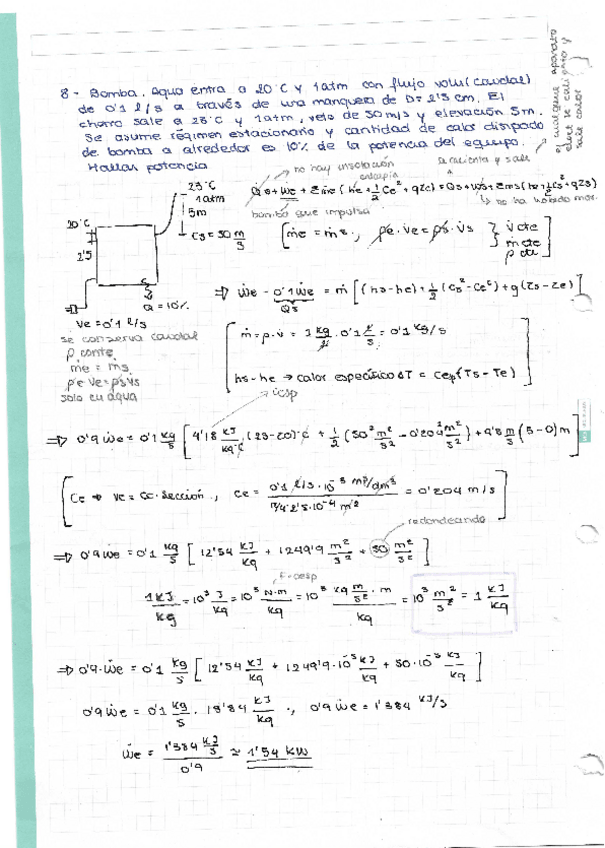 8- Bomba. Agua entra a 20°C y 1atm con flujo volu(caudal)
de 0'1 l/s a través de una manguera de D= 2'5 cm. El
chorro sale a 23°C y 1atm, velo de 50m/s y elevación 5m.
Se asume régimen estacionario y cantidad de calor disipado
de bomba a alrededor es 10% de la potencia del equipo.
Hallar potencia
cualquier aparato
elect se calienta y
sale calor
no hay insolación
entalpía
se calienta y sale
Qe+ẇe+Σṁe(he+½Ce²+gze)=Qs+ẇs+Σṁs(hs+½Cs²+gzs)
bomba que impulsa
no ha
23°C
1atm
5m
Cs=50 m/s
20°C
2'5
Q=10%
Ve=0'1 l/s
[ṁe=ṁs, ρe·Ve=ρs·Vs } V cte
ṁ cte
ρ cte]
se conserva caudal
ρ conte
ṁe=ṁs
ρeVe=ρsVs
solo en agua
⇒ ẇe - 0'1ẇe = ṁ[(hs-he)+½(Cs²-Ce²)+g(zs-ze)]
Qs
ṁ=ρ·v̇ = 1 kg/l · 0'1 l/s = 0'1 kg/s
hs-he → calor específico ΔT = cep(Ts-Te)
⇒ 0'9ẇe=0'1 kg/s [4'18 kJ/kg·°C ·(23-20)°C + ½(50² m²/s² - 0'204² m²/s²)+9'8 m/s (5-0)m]
[Ce → Ve=Ce·sección, Ce= 0'1 l/s·10⁻³ m³/dm³ / π/4·2'5·10⁻⁴ m² = 0'204 m/s]
redondeando
⇒ 0'9ẇe=0'1 kg/s [12'54 kJ/kg + 1249'9 m²/s² + 50 m²/s²]
1 kJ/kg = 10³ J/kg = 10³ N·m/kg = 10³ kg m/s² · m / kg = 10³ m²/s² = 1 kJ/kg
⇒ 0'9·ẇe=0'1 kg/s [12'54 kJ/kg + 1249'9·10⁻³ kJ/kg + 50·10⁻³ kJ/kg]
0'9ẇe=0'1 kg/s · 13'84 kJ/kg ., 0'9ẇe=1'384 kJ/s
ẇe = 1'384 kJ/s / 0'9 ≃ 1'54 kW